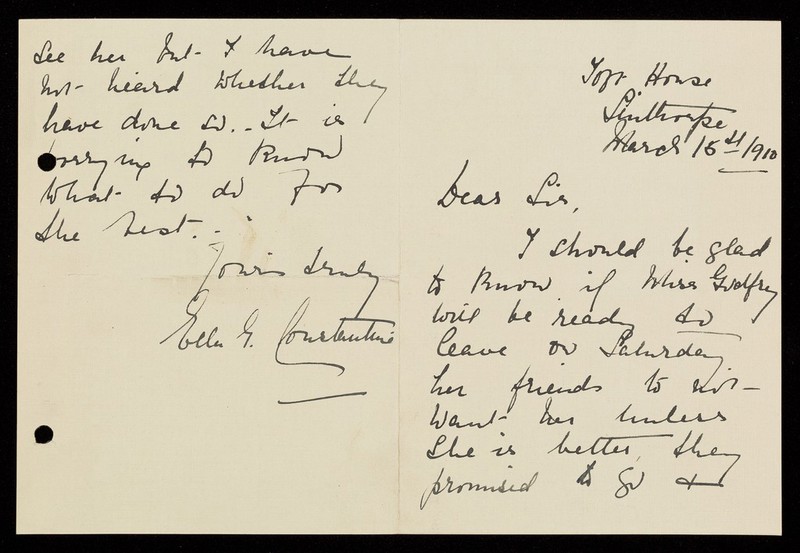 Toft House
Linthorpe
March 15th/1910
Dear Sir,
I should be glad
to know if Miss Godfrey
will be ready to
leave on Saturday
her friends do not
want her unless
she is better, they
promised to go &
see her but I have
not heard whether they
have done so. - It is
worrying to know
what to do for
the best. -
Yours truly
Ella G. Constantine